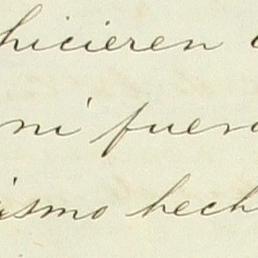 hicieren
ni fuera
ismo hech